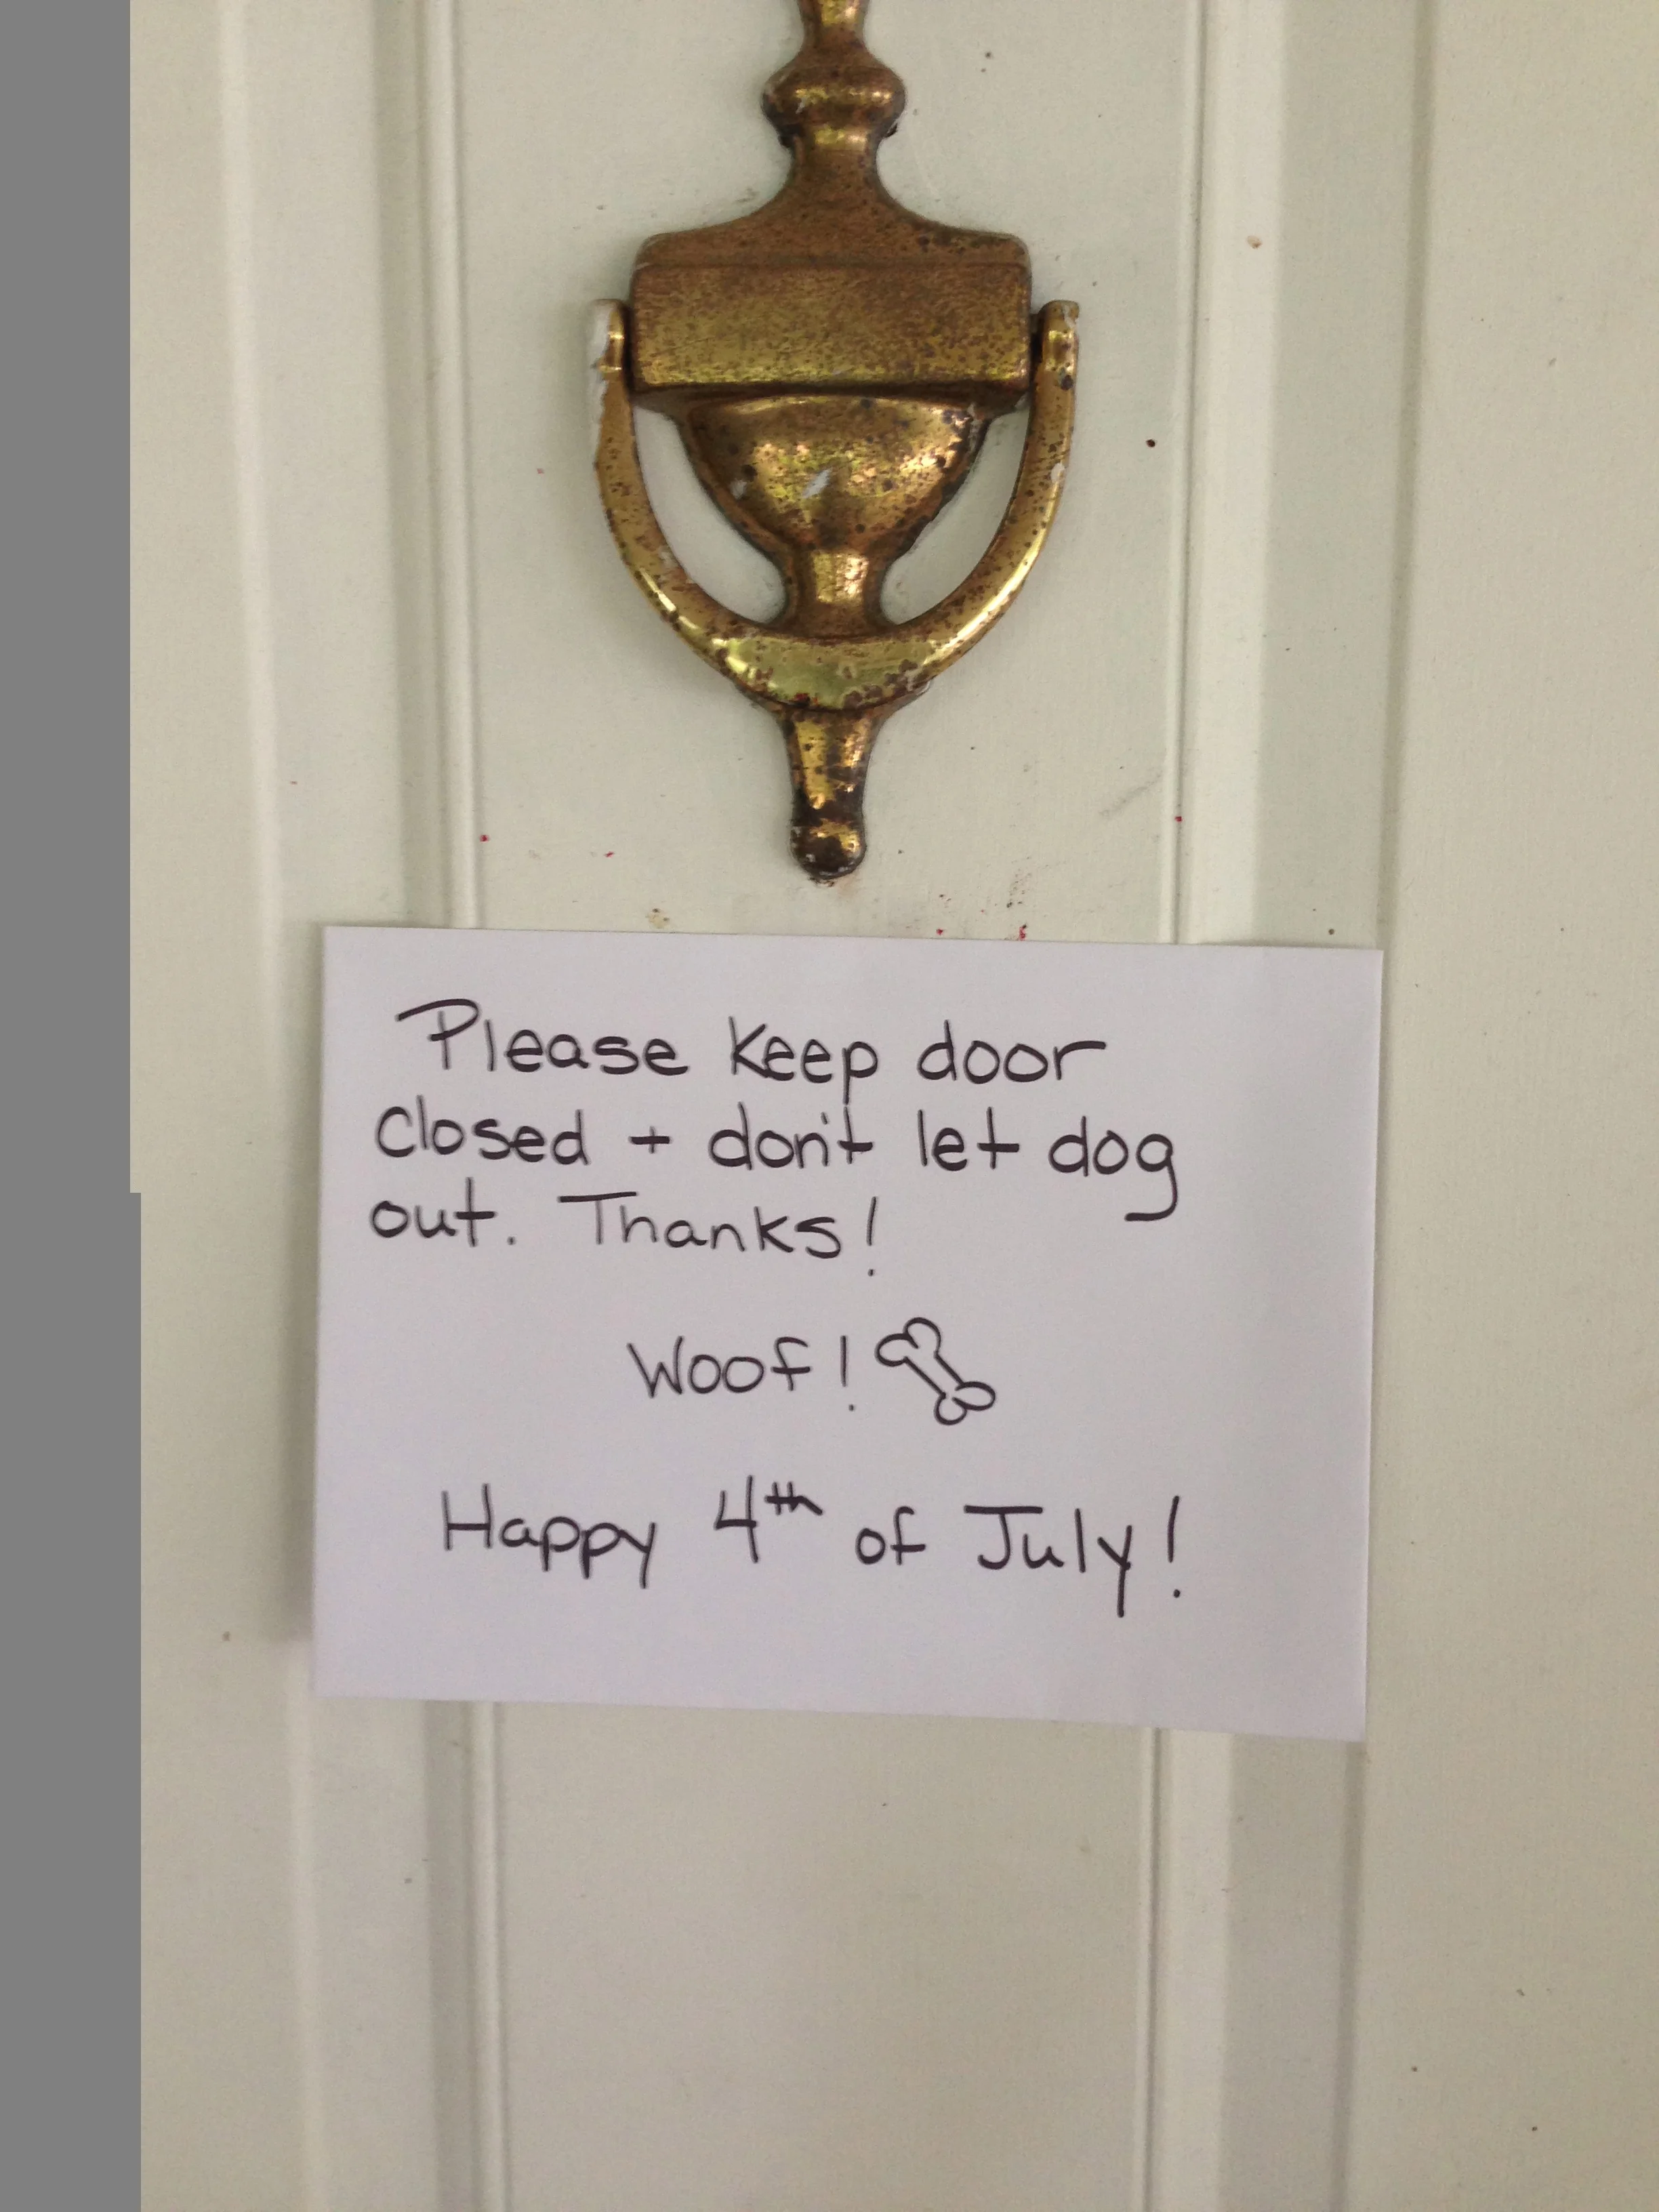 Please keep door
closed + don't let dog
out. Thanks!
Woof!
Happy 4th of July!